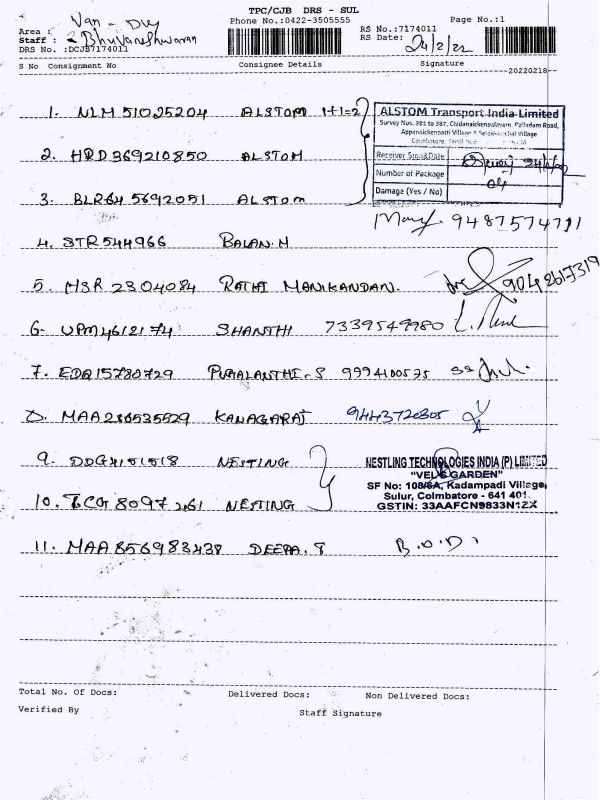 TPC/CJB DRS - SUL
Phone No.:0422-3505555
Page No.:1
Area : Van - Dly
Staff : Bhuvaneshwaran
DRS No. :DCJB7174011
RS No.:7174011
RS Date: 24/2/22
S No Consignment No Consignee Details Signature
20220218
1. NLM 51025204 ALSTOM 1+1=2
2. HRD 369210850 ALSTOM
3. BLR64 5692051 ALSTOM
ALSTOM Transport India Limited
Survey Nos. 381 to 387, Chidanaickenpalayam, Palladam Road,
Receiver Sign&Date
Number of Package 04
Damage (Yes / No)
9487574711
4. STR544966 BALAN.M
5. HSR 2304084 RATHI MANIKANDAN. 9042617319
6. UPM4612174 SHANTHI 7339549980
7. EDQ15780729 PUGALANTHI-S 9994100575
8. MAA286535529 KANAGARAJ 9443720805
9. DDG4151518 NESTING
10. TCG 8097261 NESTING
NESTLING TECHNOLOGIES INDIA (P) LIMITED
"VELS GARDEN"
SF No: 108/6A, Kadampadi Village,
Sulur, Coimbatore - 641 401.
GSTIN: 33AAFCN9833N1ZX
11. MAA856983438 DEEPA.S B.O.D.
Total No. Of Docs: Delivered Docs: Non Delivered Docs:
Verified By Staff Signature